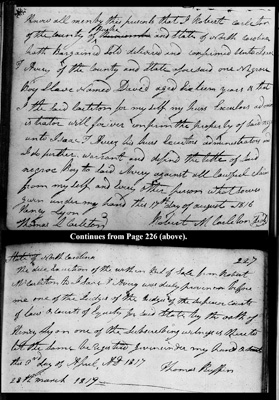 Know all men by these presents that I Robert Carleton
of the County of and State of North Carolina
hath Bargained Sold delivered and confirmed unto Isaac
T Avery of the County and State aforesaid one Negroe
Boy Slave Named David aged years & that
I the said Carleton for my self my heirs Executors adminis
istrator will forever confirm the property of said negroe
unto Isaac T Avery his heirs Executors administrators and
I do further warrant and defend the title of said
negroe Boy to said Avery against all lawful claim
from my self and every other person whatsoever
Given under my hand this 17th day of August 1816
Henry Lyon
Thomas Carleton Robert M Carleton
Continues from Page 226 (above).
State of North Carolina 227
The due Execution of the within Bill of Sale from Robert
M Carleton to Isaac T Avery was duly proven before
me one of the Judges of the Superior Courts
of Law & Courts of Equity for said State by the oath of
Henry Lyon one of the Subscribing witnesses thereto
let the same be registered Given under my hand
the 3d day of April AD 1817
Thomas Ruffin
28th March 1819